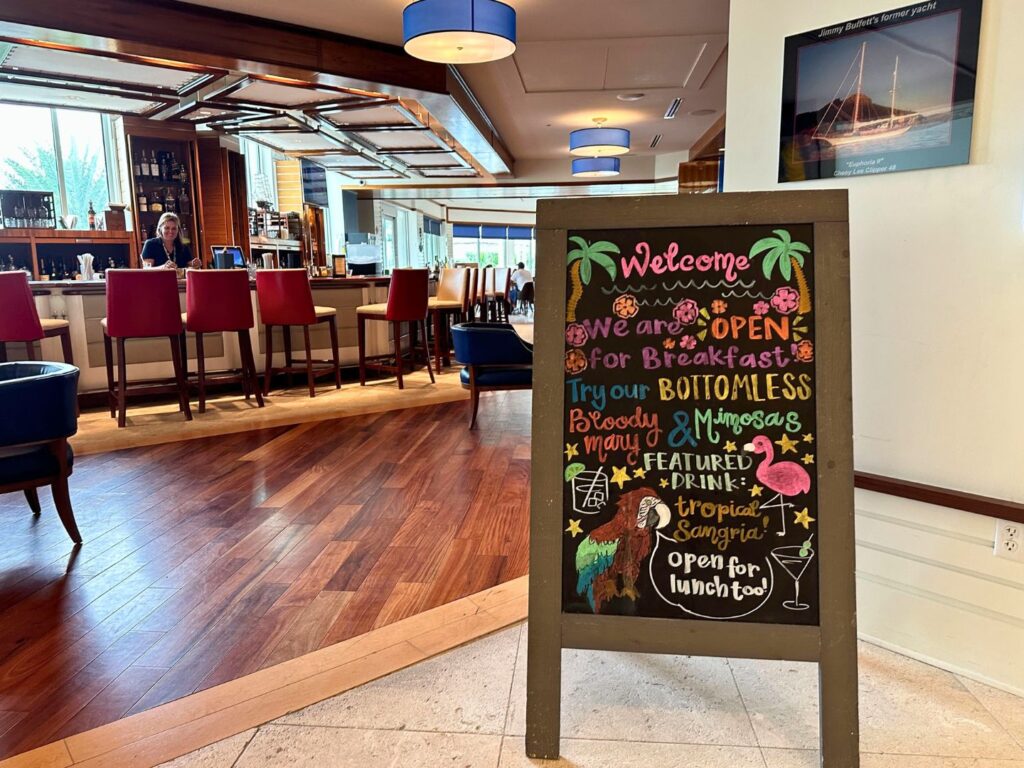 Jimmy Buffett's former yacht
"Euphoria II"
Cheoy Lee Clipper 48
Welcome
We are OPEN
for Breakfast!
Try our BOTTOMLESS
Bloody
mary & Mimosas
FEATURED
DRINK:
tropical
Sangria!
open for
lunch too!